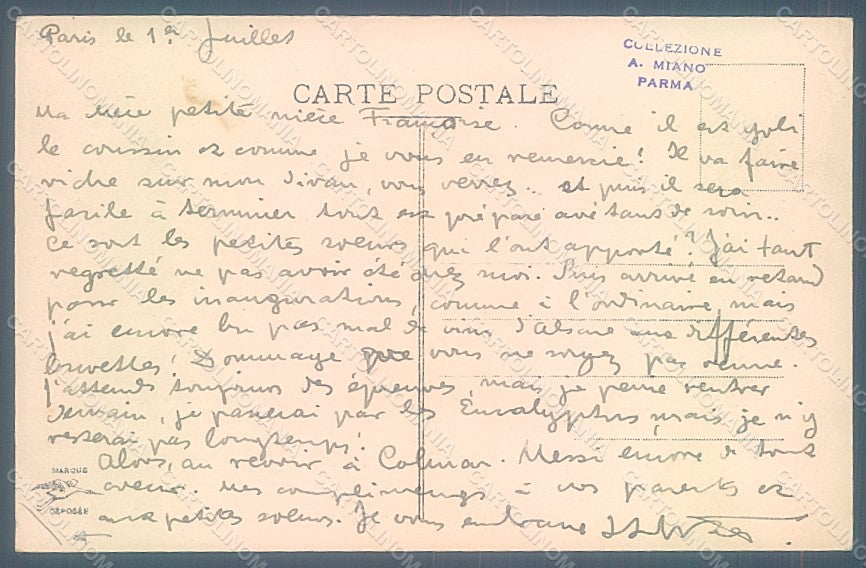 Paris le 1er Juillet
COLLEZIONE
A. MIANO
PARMA
CARTE POSTALE
Ma petite nièce Françoise. Comme il est joli
le coussin et comme je vous en remercie! Il va faire
riche sur mon divan, vous verrez.. et puis il sera
facile à terminer tout est préparé avec tant de soin..
Ce sont les petites soeurs qui l'ont apporté? J'ai tant
regretté ne pas avoir été chez moi. Suis arrivé en retard
pour les inaugurations, comme à l'ordinaire, mais
j'ai encore bu pas mal de vins d'alsace aux différentes
buvettes! Dommage que vous ne soyez pas venue.
J'attends toujours des épreuves, mais je pense rentrer
demain, je passerai par les Eucalyptus mais je n'y
resterai pas longtemps!
Alors, au revoir à Colmar. Merci encore de tout
coeur. Mes compliments à vos parents et
aux petites soeurs. Je vous embrasse
MARQUE
DÉPOSÉE
CARTOLINOMANIA